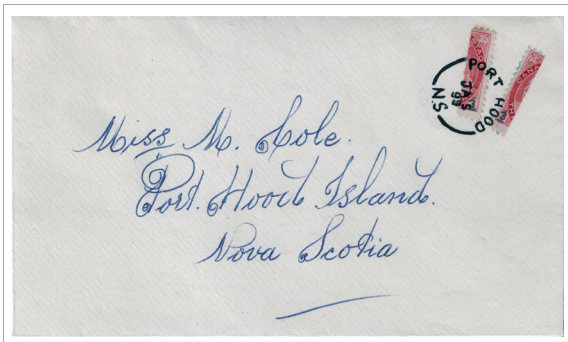 PORT HOOD
JA 5
99
N.S.
CANA
Miss M. Cole.
Port. Hood Island.
Nova Scotia